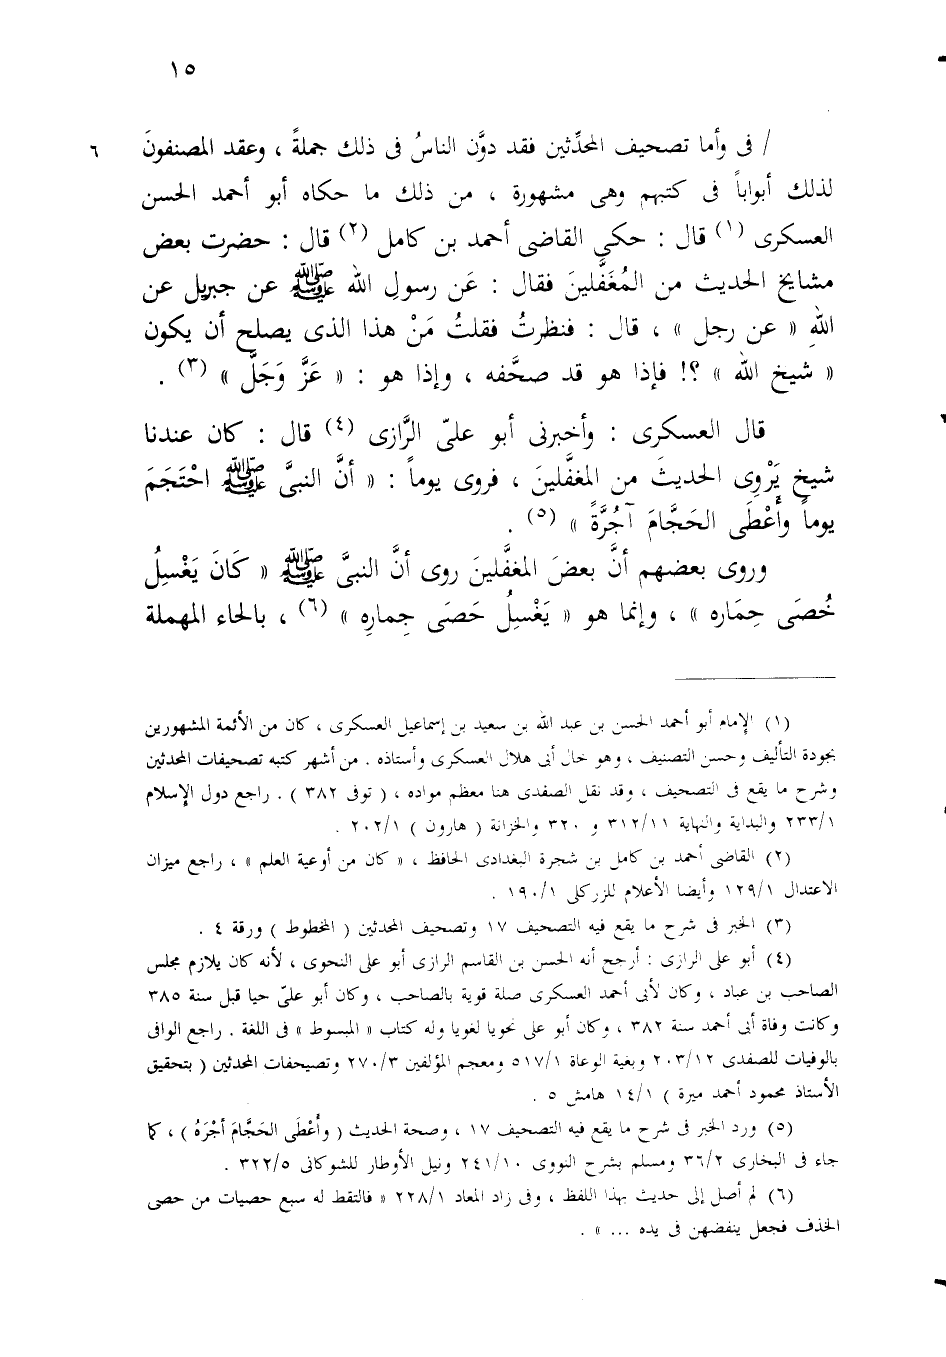 ١٥
/ فى وأما تصحيف المحدِّثين فقد دوَّن الناسُ فى ذلك جملةً ، وعقد المصنفونَ ٦
لذلك أبواباً فى كتبهم وهى مشهورة ، من ذلك ما حكاه أبو أحمد الحسن
العسكرى (١) قال : حكى القاضى أحمد بن كامل (٢) قال : حضرت بعض
مشايخ الحديث من المُغَفَّلينَ فقال : عَن رسولِ الله ﷺ عن جبريل عن
اللهِ « عن رجل » ، قال : فنظرتُ فقلتُ مَنْ هذا الذى يصلح أن يكون
« شيخ الله » ؟! فإذا هو قد صحَّفه ، وإذا هو : « عَزَّ وَجَلَّ » (٣) .
قال العسكرى : وأخبرنى أبو علىّ الرَّازى (٤) قال : كان عندنا
شيخ يَرْوِى الحديثَ من المغفَّلينَ ، فروى يوماً : « أنَّ النبىَّ ﷺ احْتَجَمَ
يوماً وأَعْطَى الحَجَّامَ آجُرَّةً » (٥) .
وروى بعضهم أنَّ بعضَ المغفَّلينَ روى أنَّ النبىَّ ﷺ « كَانَ يَغْسِلُ
خُصَى حِمَاره » ، وإنما هو « يَغْسِلُ حَصَى جِمارِه » (٦) ، بالحاء المهملة
(١) الإمام أبو أحمد الحسن بن عبد الله بن سعيد بن إسماعيل العسكرى ، كان من الأئمة المشهورين
بجودة التأليف وحسن التصنيف ، وهو خال أبى هلال العسكرى وأستاذه . من أشهر كتبه تصحيفات المحدثين
وشرح ما يقع فى التصحيف ، وقد نقل الصفدى هنا معظم مواده ، ( توفى ٣٨٢ ) . راجع دول الإسلام
٢٣٣/١ والبداية والنهاية ٣١٢/١١ و ٣٢٠ والخزانة ( هارون ) ٢٠٢/١ .
(٢) القاضى أحمد بن كامل بن شجرة البغدادى الحافظ ، « كان من أوعية العلم » ، راجع ميزان
الاعتدال ١٢٩/١ وأيضا الأعلام للزركلى ١٩٠/١ .
(٣) الخبر فى شرح ما يقع فيه التصحيف ١٧ وتصحيف المحدثين ( المخطوط ) ورقة ٤ .
(٤) أبو على الرازى : أرجح أنه الحسن بن القاسم الرازى أبو على النحوى ، لأنه كان يلازم مجلس
الصاحب بن عباد ، وكان لأبى أحمد العسكرى صلة قوية بالصاحب ، وكان أبو علىّ حيا قبل سنة ٣٨٥
وكانت وفاة أبى أحمد سنة ٣٨٢ ، وكان أبو على نحويا لغويا وله كتاب « المبسوط » فى اللغة . راجع الوافى
بالوفيات للصفدى ٢٠٣/١٢ وبغية الوعاة ٥١٧/١ ومعجم المؤلفين ٢٧٠/٣ وتصيحفات المحدثين ( بتحقيق
الأستاذ محمود أحمد ميرة ) ١٤/١ هامش ٥ .
(٥) ورد الخبر فى شرح ما يقع فيه التصحيف ١٧ ، وصحة الحديث ( وأَعْطَى الحَجَّامَ أجْرَهُ ) ، كما
جاء فى البخارى ٣٦/٢ ومسلم بشرح النووى ٢٤١/١٠ ونيل الأوطار للشوكانى ٣٢٢/٥ .
(٦) لم أصل إلى حديث بهذا اللفظ ، وفى زاد المعاد ٢٢٨/١ « فالتقط له سبع حصيات من حصى
الخذف فجعل ينفضهن فى يده ... » .